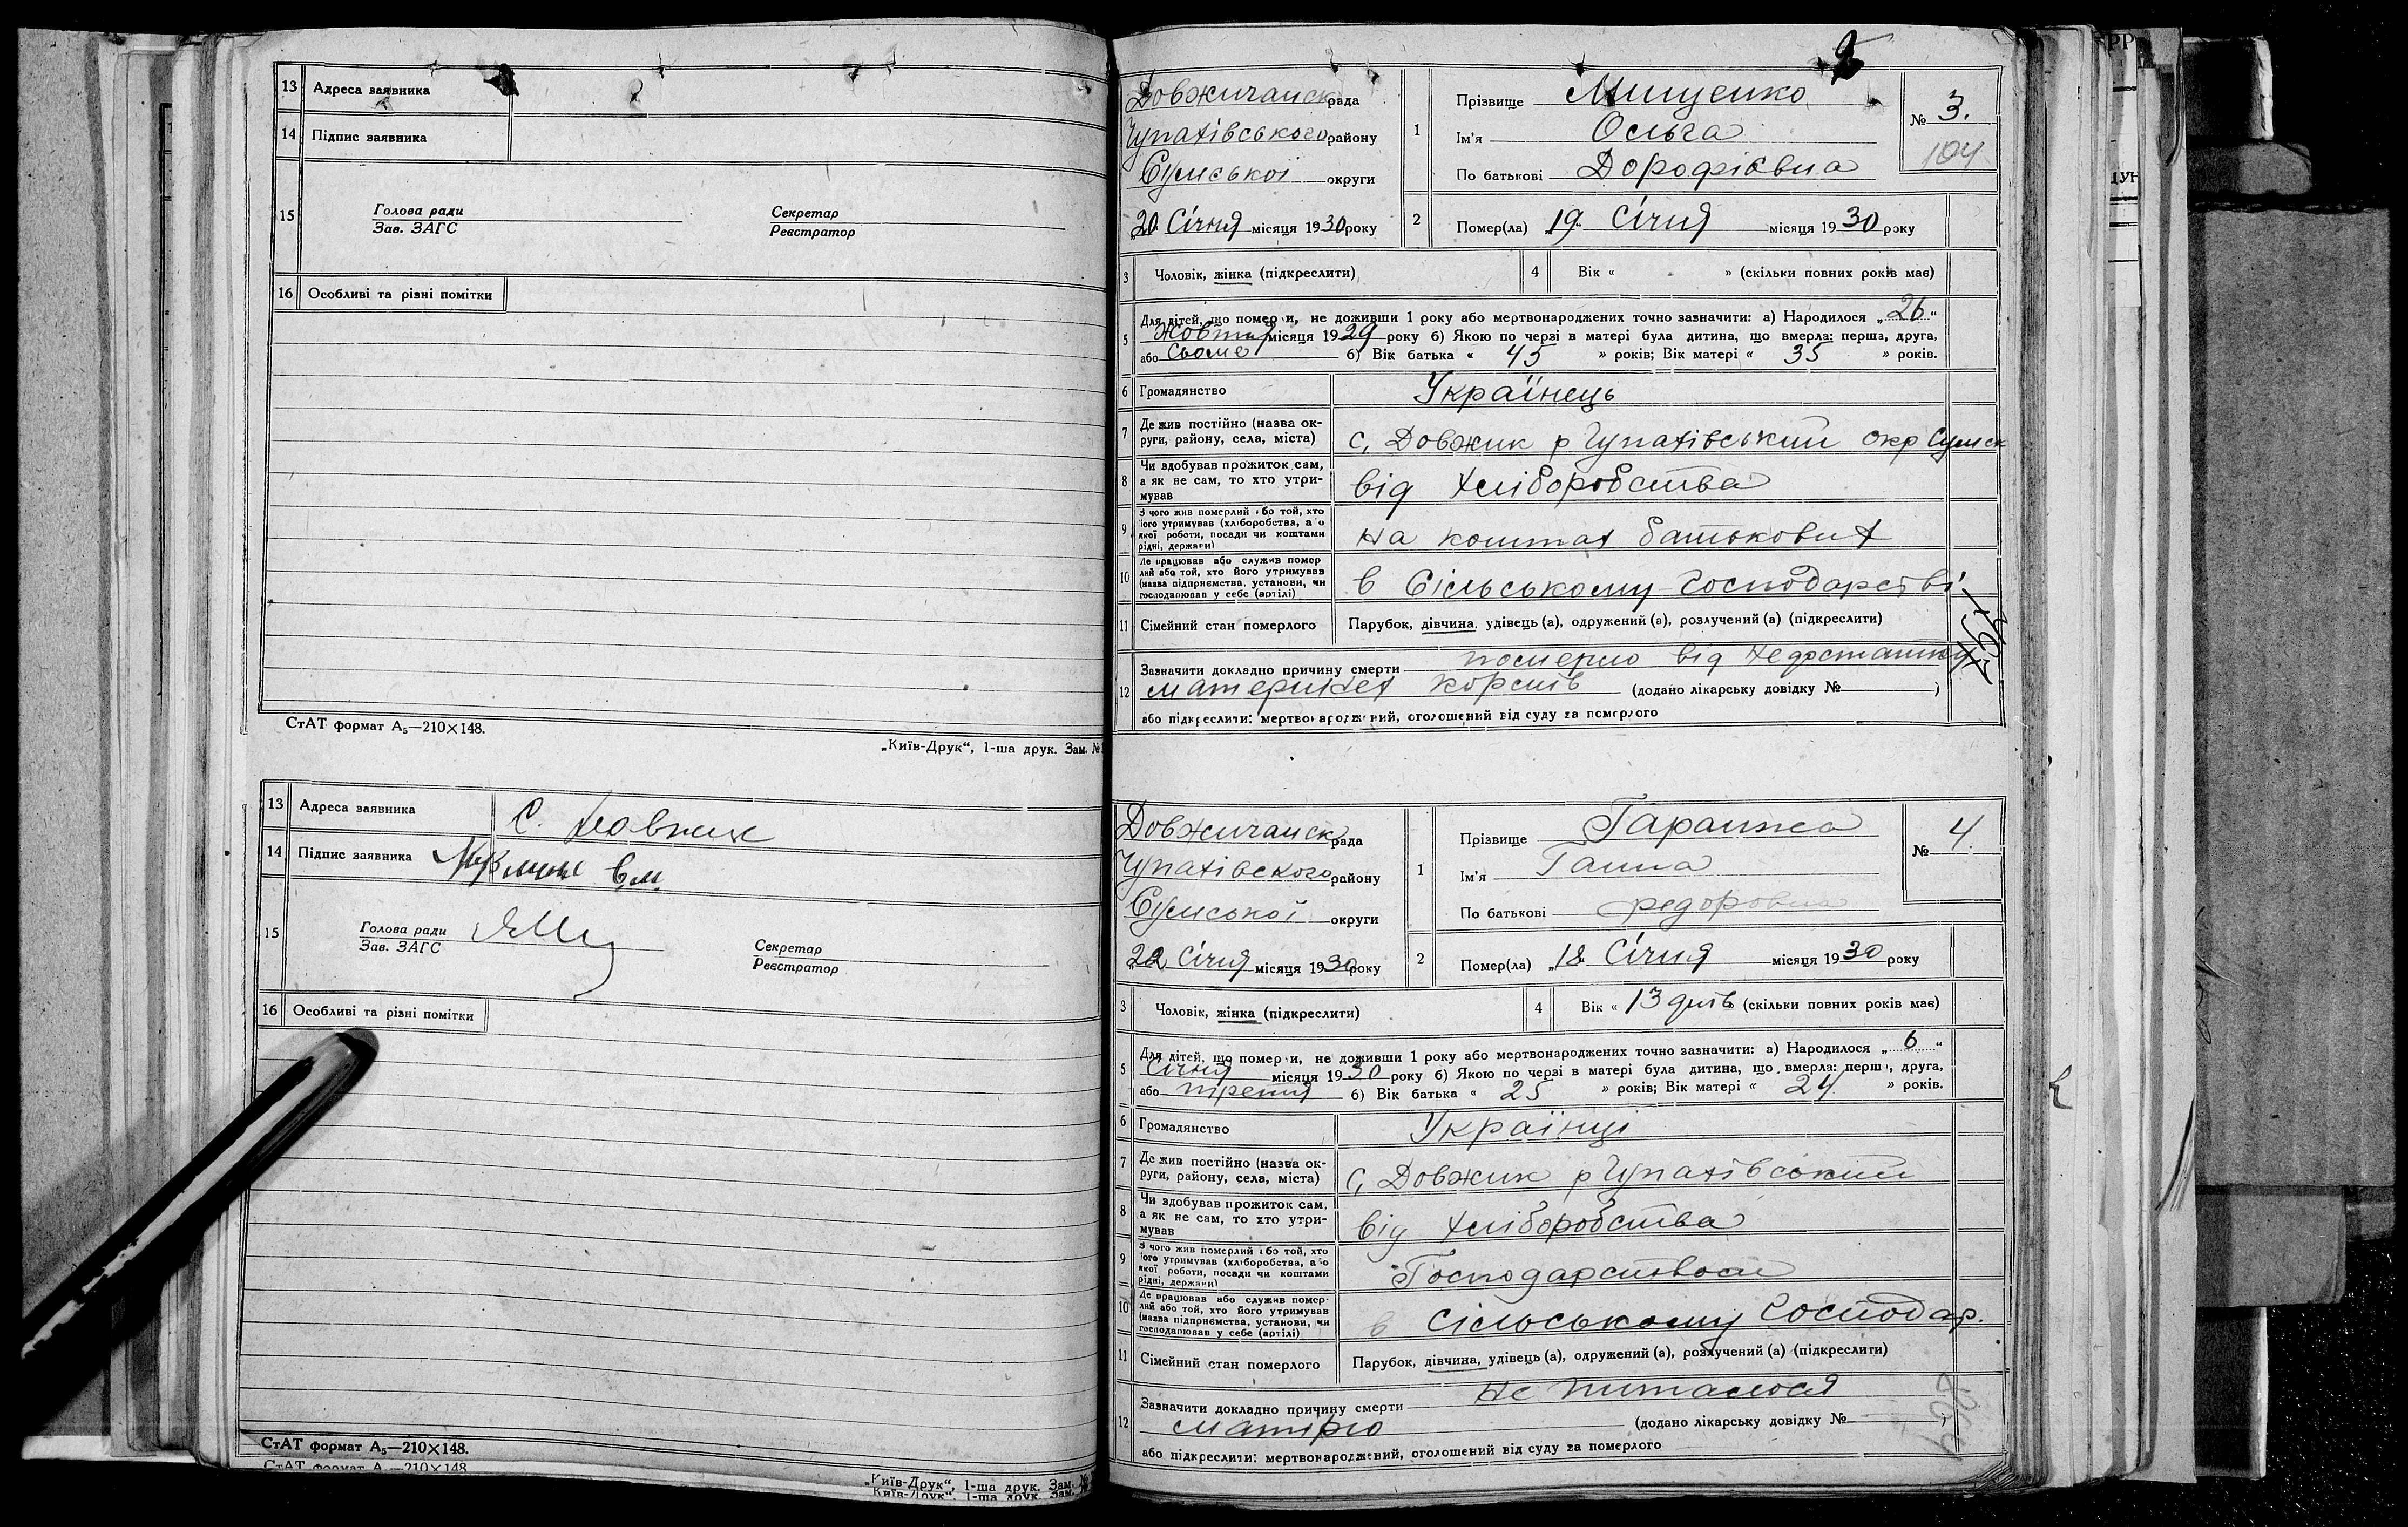 13 Адреса заявника
14 Підпис заявника
15 Голова ради Секретар
Зав. ЗАГС Реєстратор
16 Особливі та різні помітки
СтАТ формат А₅—210×148.
„Київ-Друк“, 1-ша друк. Зам. №
13 Адреса заявника С. Довжик
14 Підпис заявника
15 Голова ради Секретар
Зав. ЗАГС Реєстратор
16 Особливі та різні помітки
СтАТ формат А₅—210×148.
СтАТ формат А₅—210×148
„Київ-Друк“, 1-ша друк. Зам. №
„Київ-Друк“, 1-ша друк. Зам. №
Довжичанск рада
Чупахівського району
Сумської округи
„20 Січня місяця 1930 року
1 Прізвище Мищенко
Ім'я Ольга
По батькові Дорофієвна
№ 3.
104
2 Помер(ла) „19 Січня місяця 1930 року
3 Чоловік, жінка (підкреслити) 4 Вік « » (скільки повних років має)
5 Для дітей, що померли, не доживши 1 року або мертвонароджених точно зазначити: а) Народилося „26“
Жовтня місяця 1929 року б) Якою по черзі в матері була дитина, що вмерла: перша, друга,
або сьоме б) Вік батька « 45 » років; Вік матері « 35 » років.
6 Громадянство Українець
7 Де жив постійно (назва округи, району, села, міста) с. Довжик р Чупахівський окр Сумск
8 Чи здобував прожиток сам,
а як не сам, то хто утримував від хліборобства
9 З чого жив померлий або той, хто
його утримував (хліборобства, або
якої роботи, посади чи коштами
рідні, держави) на коштах батькових
10 Де працював або служив померлий або той, хто його утримував
(назва підприємства, установи, чи
господарював у себе (артілі) в Сільському господарстві
11 Сімейний стан померлого Парубок, дівчина, удівець (а), одружений (а), розлучений (а) (підкреслити)
12 Зазначити докладно причину смерти померло від недостатку
матерніх кормів (додано лікарську довідку № )
або підкреслити: мертвонароджений, оголошений від суду за померлого
Довжичанск рада
Чупахівского району
Сумської округи
„22 Січня місяця 1930 року
1 Прізвище Гаранжа
Ім'я Ганна
По батькові Федоровна
№ 4.
2 Помер(ла) „18 Січня місяця 1930 року
3 Чоловік, жінка (підкреслити) 4 Вік « 13 днів (скільки повних років має)
5 Для дітей, що померли, не доживши 1 року або мертвонароджених точно зазначити: а) Народилося „6“
Січня місяця 1930 року б) Якою по черзі в матері була дитина, що вмерла: перша, друга,
або третя б) Вік батька « 25 » років; Вік матері « 24 » років.
6 Громадянство Українці
7 Де жив постійно (назва округи, району, села, міста) с. Довжик р Чупахівський
8 Чи здобував прожиток сам,
а як не сам, то хто утримував від хліборобства
9 З чого жив померлий або той, хто
його утримував (хліборобства, або
якої роботи, посади чи коштами
рідні, держави) Господарством
10 Де працював або служив померлий або той, хто його утримував
(назва підприємства, установи, чи
господарював у себе (артілі) в Сільському Господар.
11 Сімейний стан померлого Парубок, дівчина, удівець (а), одружений (а), розлучений (а) (підкреслити)
12 Зазначити докладно причину смерти не питалося
матірю (додано лікарську довідку № )
або підкреслити: мертвонароджений, оголошений від суду за померлого